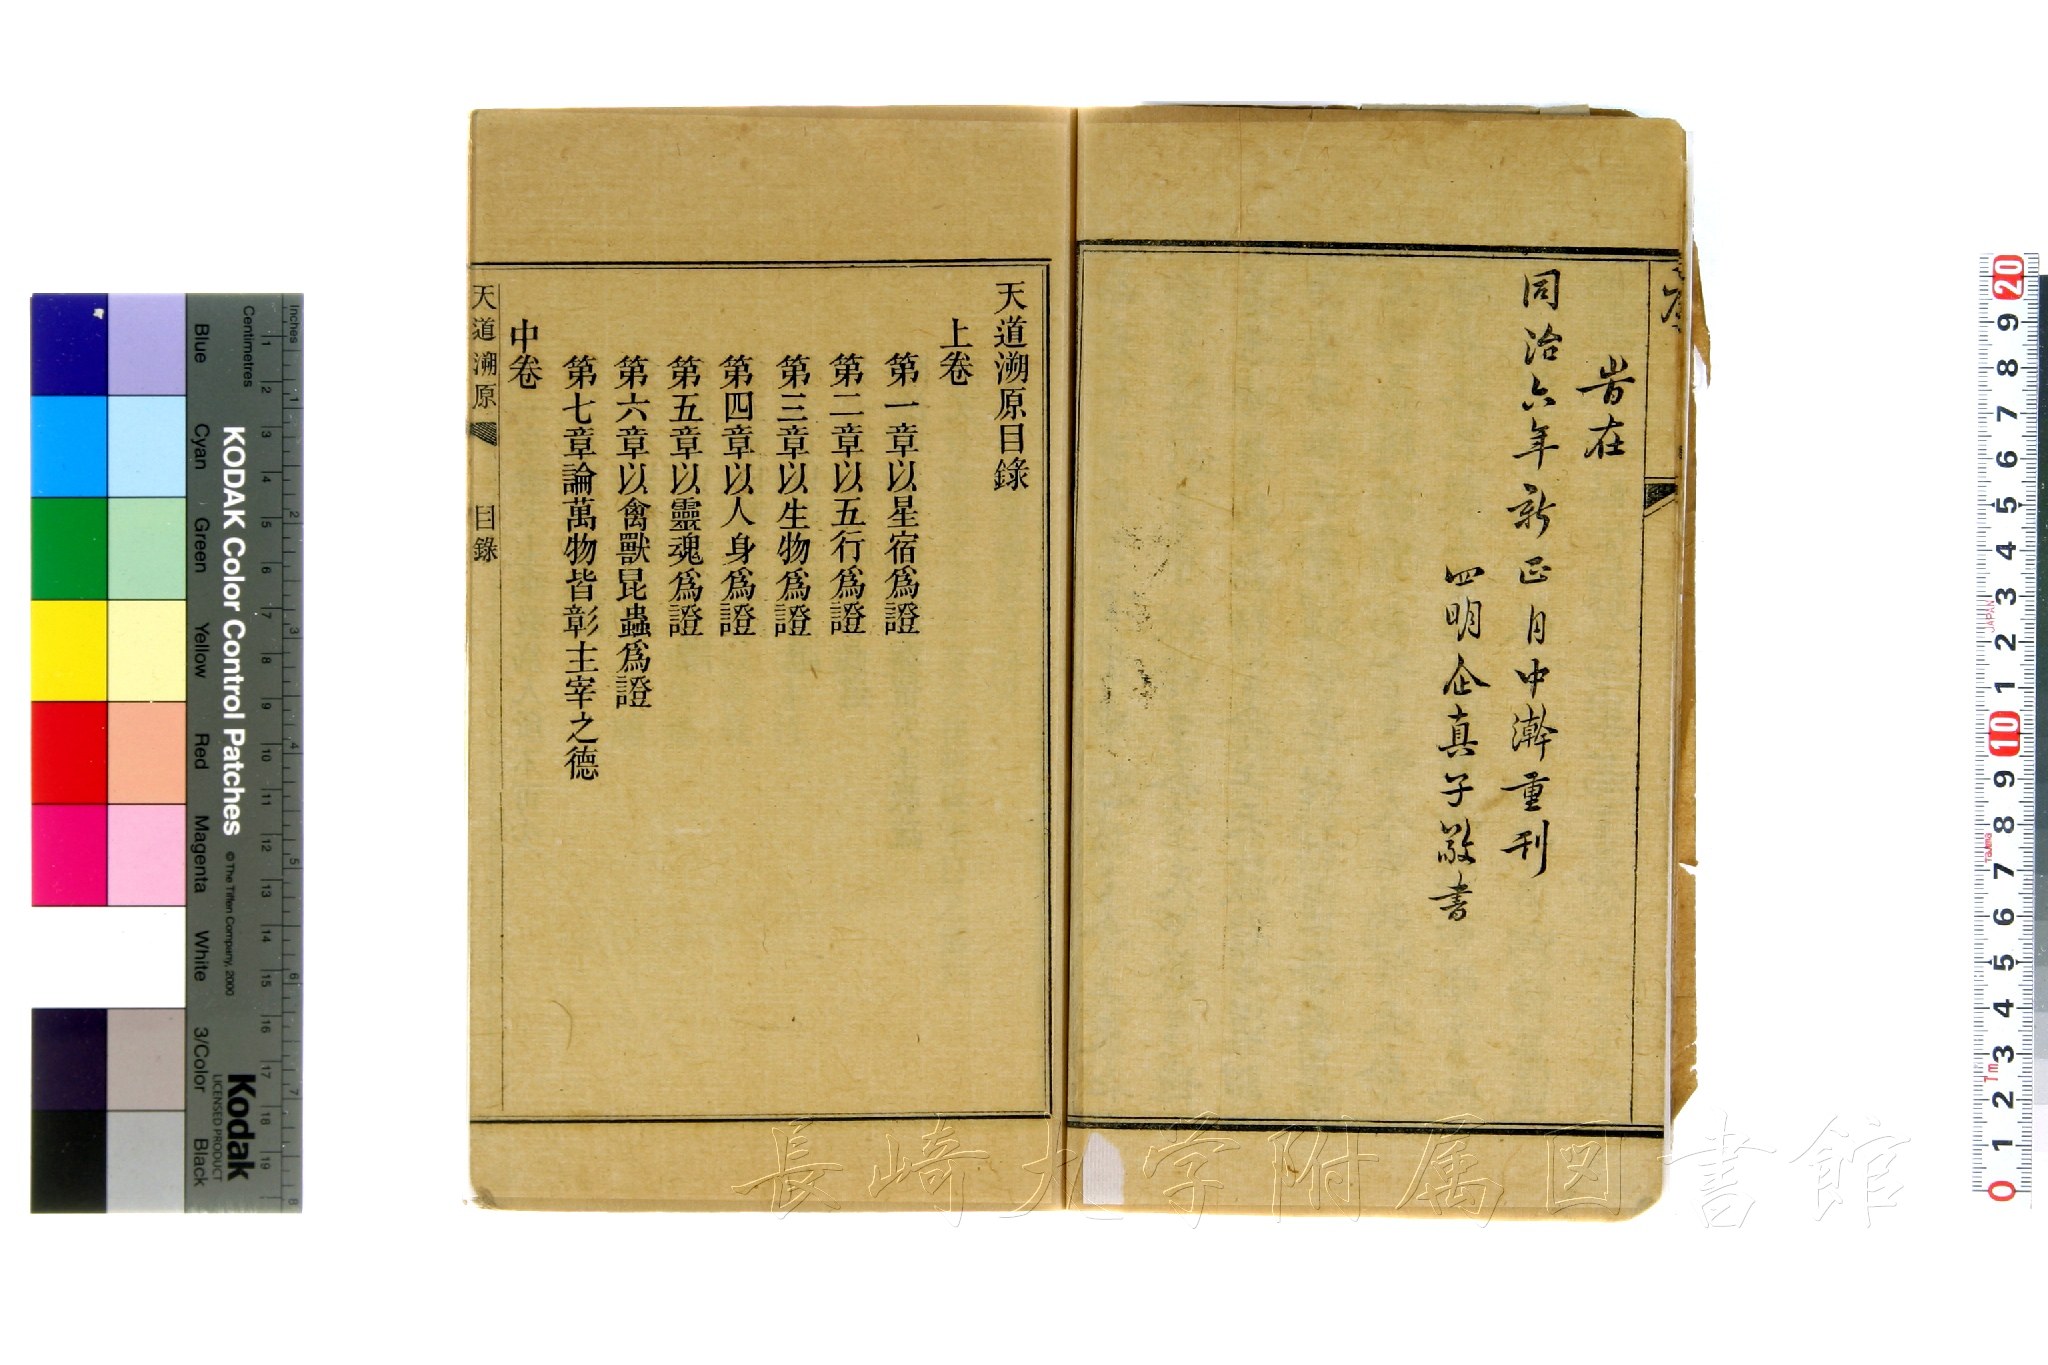 序
旹在
同治六年新正月中澣重刊
四明企真子敬書
天道溯原目錄
上卷
第一章以星宿爲證
第二章以五行爲證
第三章以生物爲證
第四章以人身爲證
第五章以靈魂爲證
第六章以禽獸昆蟲爲證
第七章論萬物皆彰主宰之德
中卷
天道溯原 目錄
長崎大学附属図書館
KODAK Color Control Patches
© The Tiffen Company, 2000
Kodak
LICENSED PRODUCT
Blue Cyan Green Yellow Red Magenta White 3/Color Black
Inches 1 2 3 4 5 6 7 8
Centimetres 1 2 3 4 5 6 7 8 9 10 11 12 13 14 15 16 17 18 19
20 9 8 7 6 5 4 3 2 1 10 9 8 7 6 5 4 3 2 1 0
JAPAN
TAJIMA